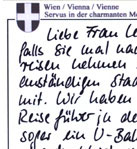 Wien / Vienna / Vienne
Servus in der charmanten M
Liebe Frau Le
falls Sie mal nac
reisen nehmen
umständigen Stad
mit. Wir haben
Reiseführer in de
sogar ein U-Ba